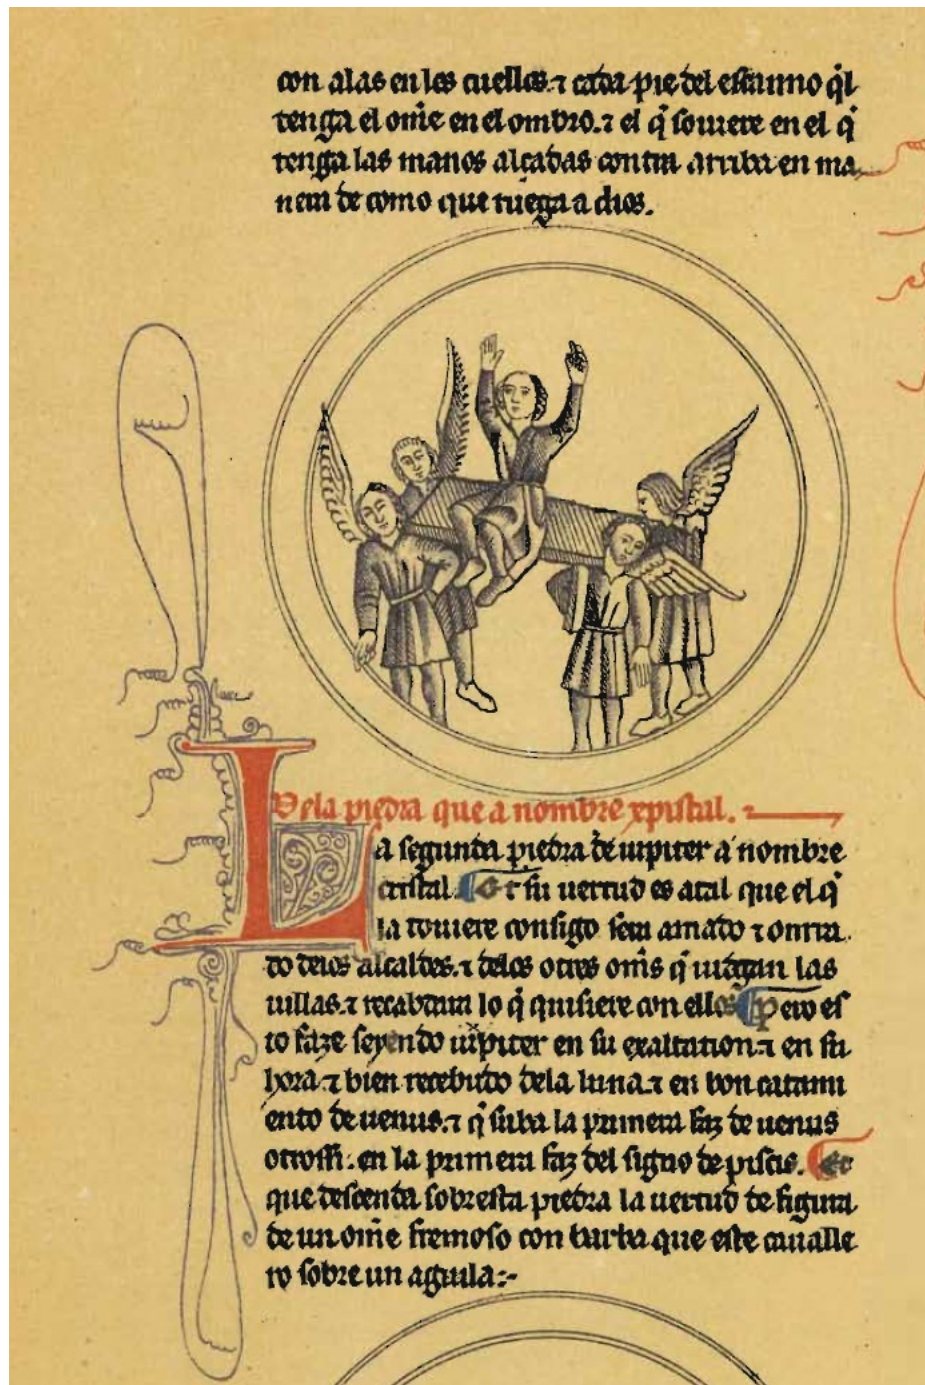 con alas en los cuellos. ⁊ cada pie del escanno q̃l
tenga el om̃e en el ombro. ⁊ el q̃ souiere en el q̃
tenga las manos alçadas contra arriba en ma
nera de como que ruega a dios.
Dela piedra que a nombre xpistal.
La segunda piedra de iupiter a nombre
cristal. Et su uertud es atal que el q̃
la touiere consigo sera amado ⁊ onrra
do delos alcaldes. ⁊ delos otros om̃s q̃ iudgan las
uillas. ⁊ recabdara lo q̃ quisiere con ellos. Pero es
to faze seyendo iupiter en su exaltation. ⁊ en su
hora. ⁊ bien recebudo dela luna. ⁊ en bon catami
ento de uenus. ⁊ q̃ suba la primera faz de uenus
otrossi: en la primera faz del signo de piscis. Et
que descenda sobresta piedra la uertud de figura
de un om̃e fremoso con barba que este caualle
ro sobre un aguila:-